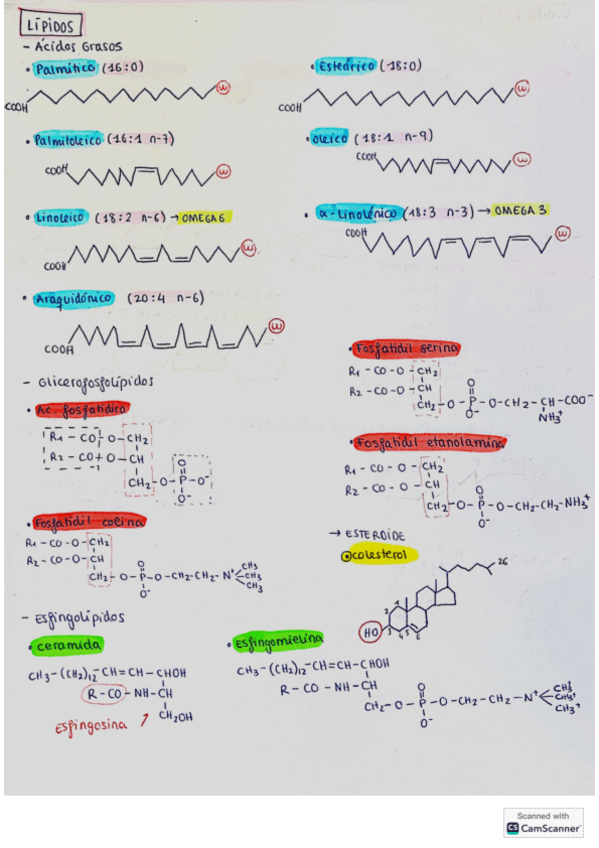 LÍPIDOS
- Ácidos Grasos
• Palmítico (16:0)
COOH ω
• Esteárico (18:0)
COOH ω
• Palmitoleico (16:1 n-7)
COOH ω
• oleico (18:1 n-9)
COOH ω
• Linoleico (18:2 n-6) → OMEGA 6
COOH ω
• α-Linolénico (18:3 n-3) → OMEGA 3
COOH ω
• Araquidónico (20:4 n-6)
COOH ω
- Glicerofosfolípidos
• Ac. fosfatídico
R1 - CO - O - CH2
R2 - CO - O - CH
CH2 - O - P - O-
O
O-
• Fosfatidil colina
R1 - CO - O - CH2
R2 - CO - O - CH
O
CH2 - O - P - O - CH2 - CH2 - N+ CH3 CH3 CH3
O-
• Fosfatidil serina
R1 - CO - O - CH2
R2 - CO - O - CH
O
CH2 - O - P - O - CH2 - CH - COO-
O- NH3+
• Fosfatidil etanolamina
R1 - CO - O - CH2
R2 - CO - O - CH
O
CH2 - O - P - O - CH2 - CH2 - NH3+
O-
→ ESTEROIDE
colesterol
26
1 2 3 4 5 6
HO
- Esfingolípidos
• ceramida
CH3 - (CH2)12 - CH = CH - CHOH
R - CO - NH - CH
CH2OH
Esfingosina
• Esfingomielina
CH3 - (CH2)12 - CH = CH - CHOH
R - CO - NH - CH
O
CH2 - O - P - O - CH2 - CH2 - N+ CH3+ CH3+ CH3+
O-
Scanned with
CS CamScanner